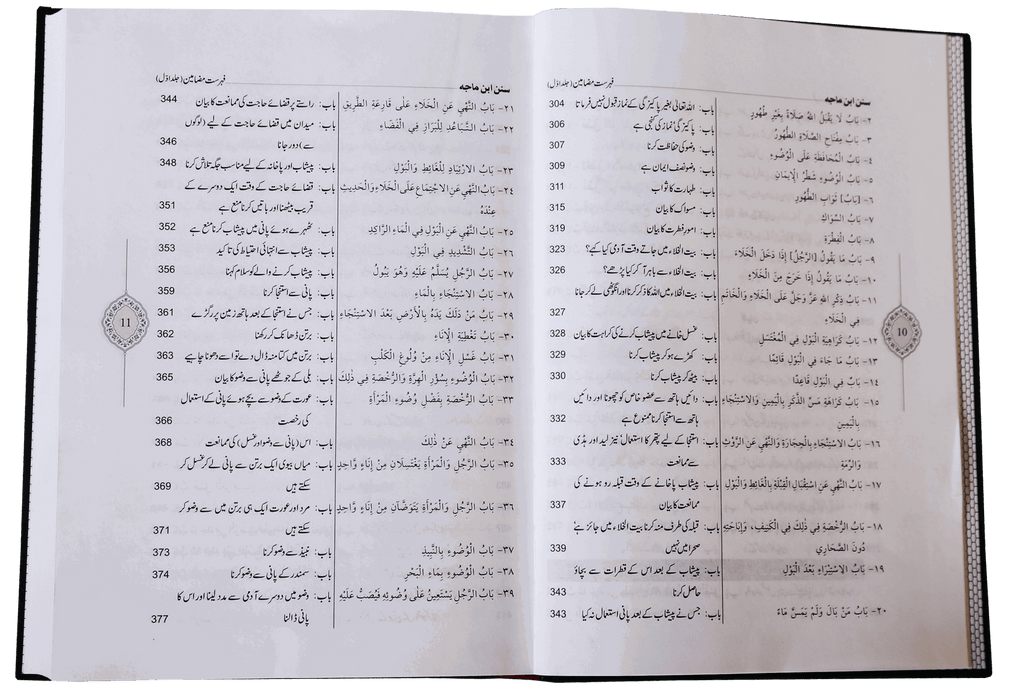 سنن ابن ماجه فہرست مضامین (جلد اوّل)
٢- بَابُ لَا يَقْبَلُ اللهُ صَلَاةً بِغَيْرِ طُهُورٍ باب: اللہ تعالیٰ بغیر پاکیزگی کے نماز قبول نہیں فرماتا 304
٣- بَابُ مِفْتَاحُ الصَّلَاةِ الطُّهُورُ باب: پاکیزگی نماز کی کنجی ہے 306
٤- بَابُ الْمُحَافَظَةِ عَلَى الْوُضُوءِ باب: وضو کی حفاظت کرنا 307
٥- بَابُ الْوُضُوءُ شَطْرُ الْإِيمَانِ باب: وضو نصف ایمان ہے 309
٦- [بَابُ] ثَوَابِ الطُّهُورِ باب: طہارت کا ثواب 311
٧- بَابُ السِّوَاكِ باب: مسواک کا بیان 315
٨- بَابُ الْفِطْرَةِ باب: امور فطرت کا بیان 319
٩- بَابُ مَا يَقُولُ [الرَّجُلُ] إِذَا دَخَلَ الْخَلَاءَ باب: بیت الخلاء میں جاتے وقت آدمی کیا کہے؟ 323
١٠- بَابُ مَا يَقُولُ إِذَا خَرَجَ مِنَ الْخَلَاءِ باب: بیت الخلاء سے باہر آ کر کیا پڑھے؟ 326
١١- بَابُ ذِكْرِ اللهِ عَزَّ وَجَلَّ عَلَى الْخَلَاءِ وَالْخَاتَمِ باب: بیت الخلاء میں اللہ کا ذکر کرنا اور انگوٹھی لے کر جانا
فِي الْخَلَاءِ 327
١٢- بَابُ كَرَاهِيَةِ الْبَوْلِ فِي الْمُغْتَسَلِ باب: غسل خانے میں پیشاب کرنے کی کراہت کا بیان 328
١٣- بَابُ مَا جَاءَ فِي الْبَوْلِ قَائِمًا باب: کھڑے ہو کر پیشاب کرنا 329
١٤- بَابُ فِي الْبَوْلِ قَاعِدًا باب: بیٹھ کر پیشاب کرنا 330
١٥- بَابُ كَرَاهَةِ مَسِّ الذَّكَرِ بِالْيَمِينِ وَالاسْتِنْجَاءِ باب: دائیں ہاتھ سے عضو خاص کو چھونا اور دائیں
بِالْيَمِينِ ہاتھ سے استنجا کرنا ممنوع ہے 332
١٦- بَابُ الاسْتِنْجَاءِ بِالْحِجَارَةِ وَالنَّهْيِ عَنِ الرَّوْثِ باب: استنجا کے لیے پتھر کا استعمال نیز لید اور ہڈی
وَالرِّمَّةِ سے ممانعت 333
١٧- بَابُ النَّهْيِ عَنِ اسْتِقْبَالِ الْقِبْلَةِ بِالْغَائِطِ وَالْبَوْلِ باب: پیشاب پاخانے کے وقت قبلہ رو ہونے کی
ممانعت کا بیان 337
١٨- بَابُ الرُّخْصَةِ فِي ذَلِكَ فِي الْكَنِيفِ، وَإِبَاحَتِهِ باب: قبلہ کی طرف منہ کرنا بیت الخلاء میں جائز ہے
دُونَ الصَّحَارِي صحرا میں نہیں 339
١٩- بَابُ الاسْتِبْرَاءِ بَعْدَ الْبَوْلِ باب: پیشاب کے بعد اس کے قطرات سے بچاؤ
حاصل کرنا 343
٢٠- بَابُ مَنْ بَالَ وَلَمْ يَمَسَّ مَاءً باب: جس نے پیشاب کے بعد پانی استعمال نہ کیا 343
10
سنن ابن ماجه فہرست مضامین (جلد اوّل)
٢١- بَابُ النَّهْيِ عَنِ الْخَلَاءِ عَلَى قَارِعَةِ الطَّرِيقِ باب: راستے پر قضائے حاجت کی ممانعت کا بیان 344
٢٢- بَابُ التَّبَاعُدِ لِلْبَرَازِ فِي الْفَضَاءِ باب: میدان میں قضائے حاجت کے لیے (لوگوں
سے) دور جانا 346
٢٣- بَابُ الارْتِيَادِ لِلْغَائِطِ وَالْبَوْلِ باب: پیشاب اور پاخانہ کے لیے مناسب جگہ تلاش کرنا 348
٢٤- بَابُ النَّهْيِ عَنِ الاجْتِمَاعِ عَلَى الْخَلَاءِ وَالْحَدِيثِ باب: قضائے حاجت کے وقت ایک دوسرے کے
عِنْدَهُ قریب بیٹھنا اور باتیں کرنا منع ہے 351
٢٥- بَابُ النَّهْيِ عَنِ الْبَوْلِ فِي الْمَاءِ الرَّاكِدِ باب: ٹھہرے ہوئے پانی میں پیشاب کرنا منع ہے 352
٢٦- بَابُ التَّشْدِيدِ فِي الْبَوْلِ باب: پیشاب سے انتہائی احتیاط کی تاکید 353
٢٧- بَابُ الرَّجُلِ يُسَلَّمُ عَلَيْهِ وَهُوَ يَبُولُ باب: پیشاب کرنے والے کو سلام کہنا 356
٢٨- بَابُ الاسْتِنْجَاءِ بِالْمَاءِ باب: پانی سے استنجا کرنا 359
٢٩- بَابُ مَنْ دَلَكَ يَدَهُ بِالْأَرْضِ بَعْدَ الاسْتِنْجَاءِ باب: جس نے استنجا کے بعد ہاتھ زمین پر رگڑے 361
٣٠- بَابُ تَغْطِيَةِ الْإِنَاءِ باب: برتن ڈھانک کر رکھنا 362
٣١- بَابُ غَسْلِ الْإِنَاءِ مِنْ وُلُوغِ الْكَلْبِ باب: برتن میں کتا منہ ڈال دے تو اسے دھونا چاہیے 363
٣٢- بَابُ الْوُضُوءِ بِسُؤْرِ الْهِرَّةِ وَالرُّخْصَةِ فِي ذَلِكَ باب: بلی کے جوٹھے پانی سے وضو کا بیان 365
٣٣- بَابُ الرُّخْصَةِ بِفَضْلِ وُضُوءِ الْمَرْأَةِ باب: عورت کے وضو سے بچے ہوئے پانی کے استعمال
کی رخصت 366
٣٤- بَابُ النَّهْيِ عَنْ ذَلِكَ باب: اس (پانی سے وضو اور غسل) کی ممانعت 368
٣٥- بَابُ الرَّجُلِ وَالْمَرْأَةِ يَغْتَسِلَانِ مِنْ إِنَاءٍ وَاحِدٍ باب: میاں بیوی ایک برتن سے پانی لے کر غسل کر
سکتے ہیں 369
٣٦- بَابُ الرَّجُلِ وَالْمَرْأَةِ يَتَوَضَّآنِ مِنْ إِنَاءٍ وَاحِدٍ باب: مرد اور عورت ایک ہی برتن میں سے وضو کر
سکتے ہیں 371
٣٧- بَابُ الْوُضُوءِ بِالنَّبِيذِ باب: نبیذ سے وضو کرنا 373
٣٨- بَابُ الْوُضُوءِ بِمَاءِ الْبَحْرِ باب: سمندر کے پانی سے وضو کرنا 374
٣٩- بَابُ الرَّجُلِ يَسْتَعِينُ عَلَى وُضُوئِهِ فَيُصَبُّ عَلَيْهِ باب: وضو میں دوسرے آدمی سے مدد لینا اور اس کا
پانی ڈالنا 377
11